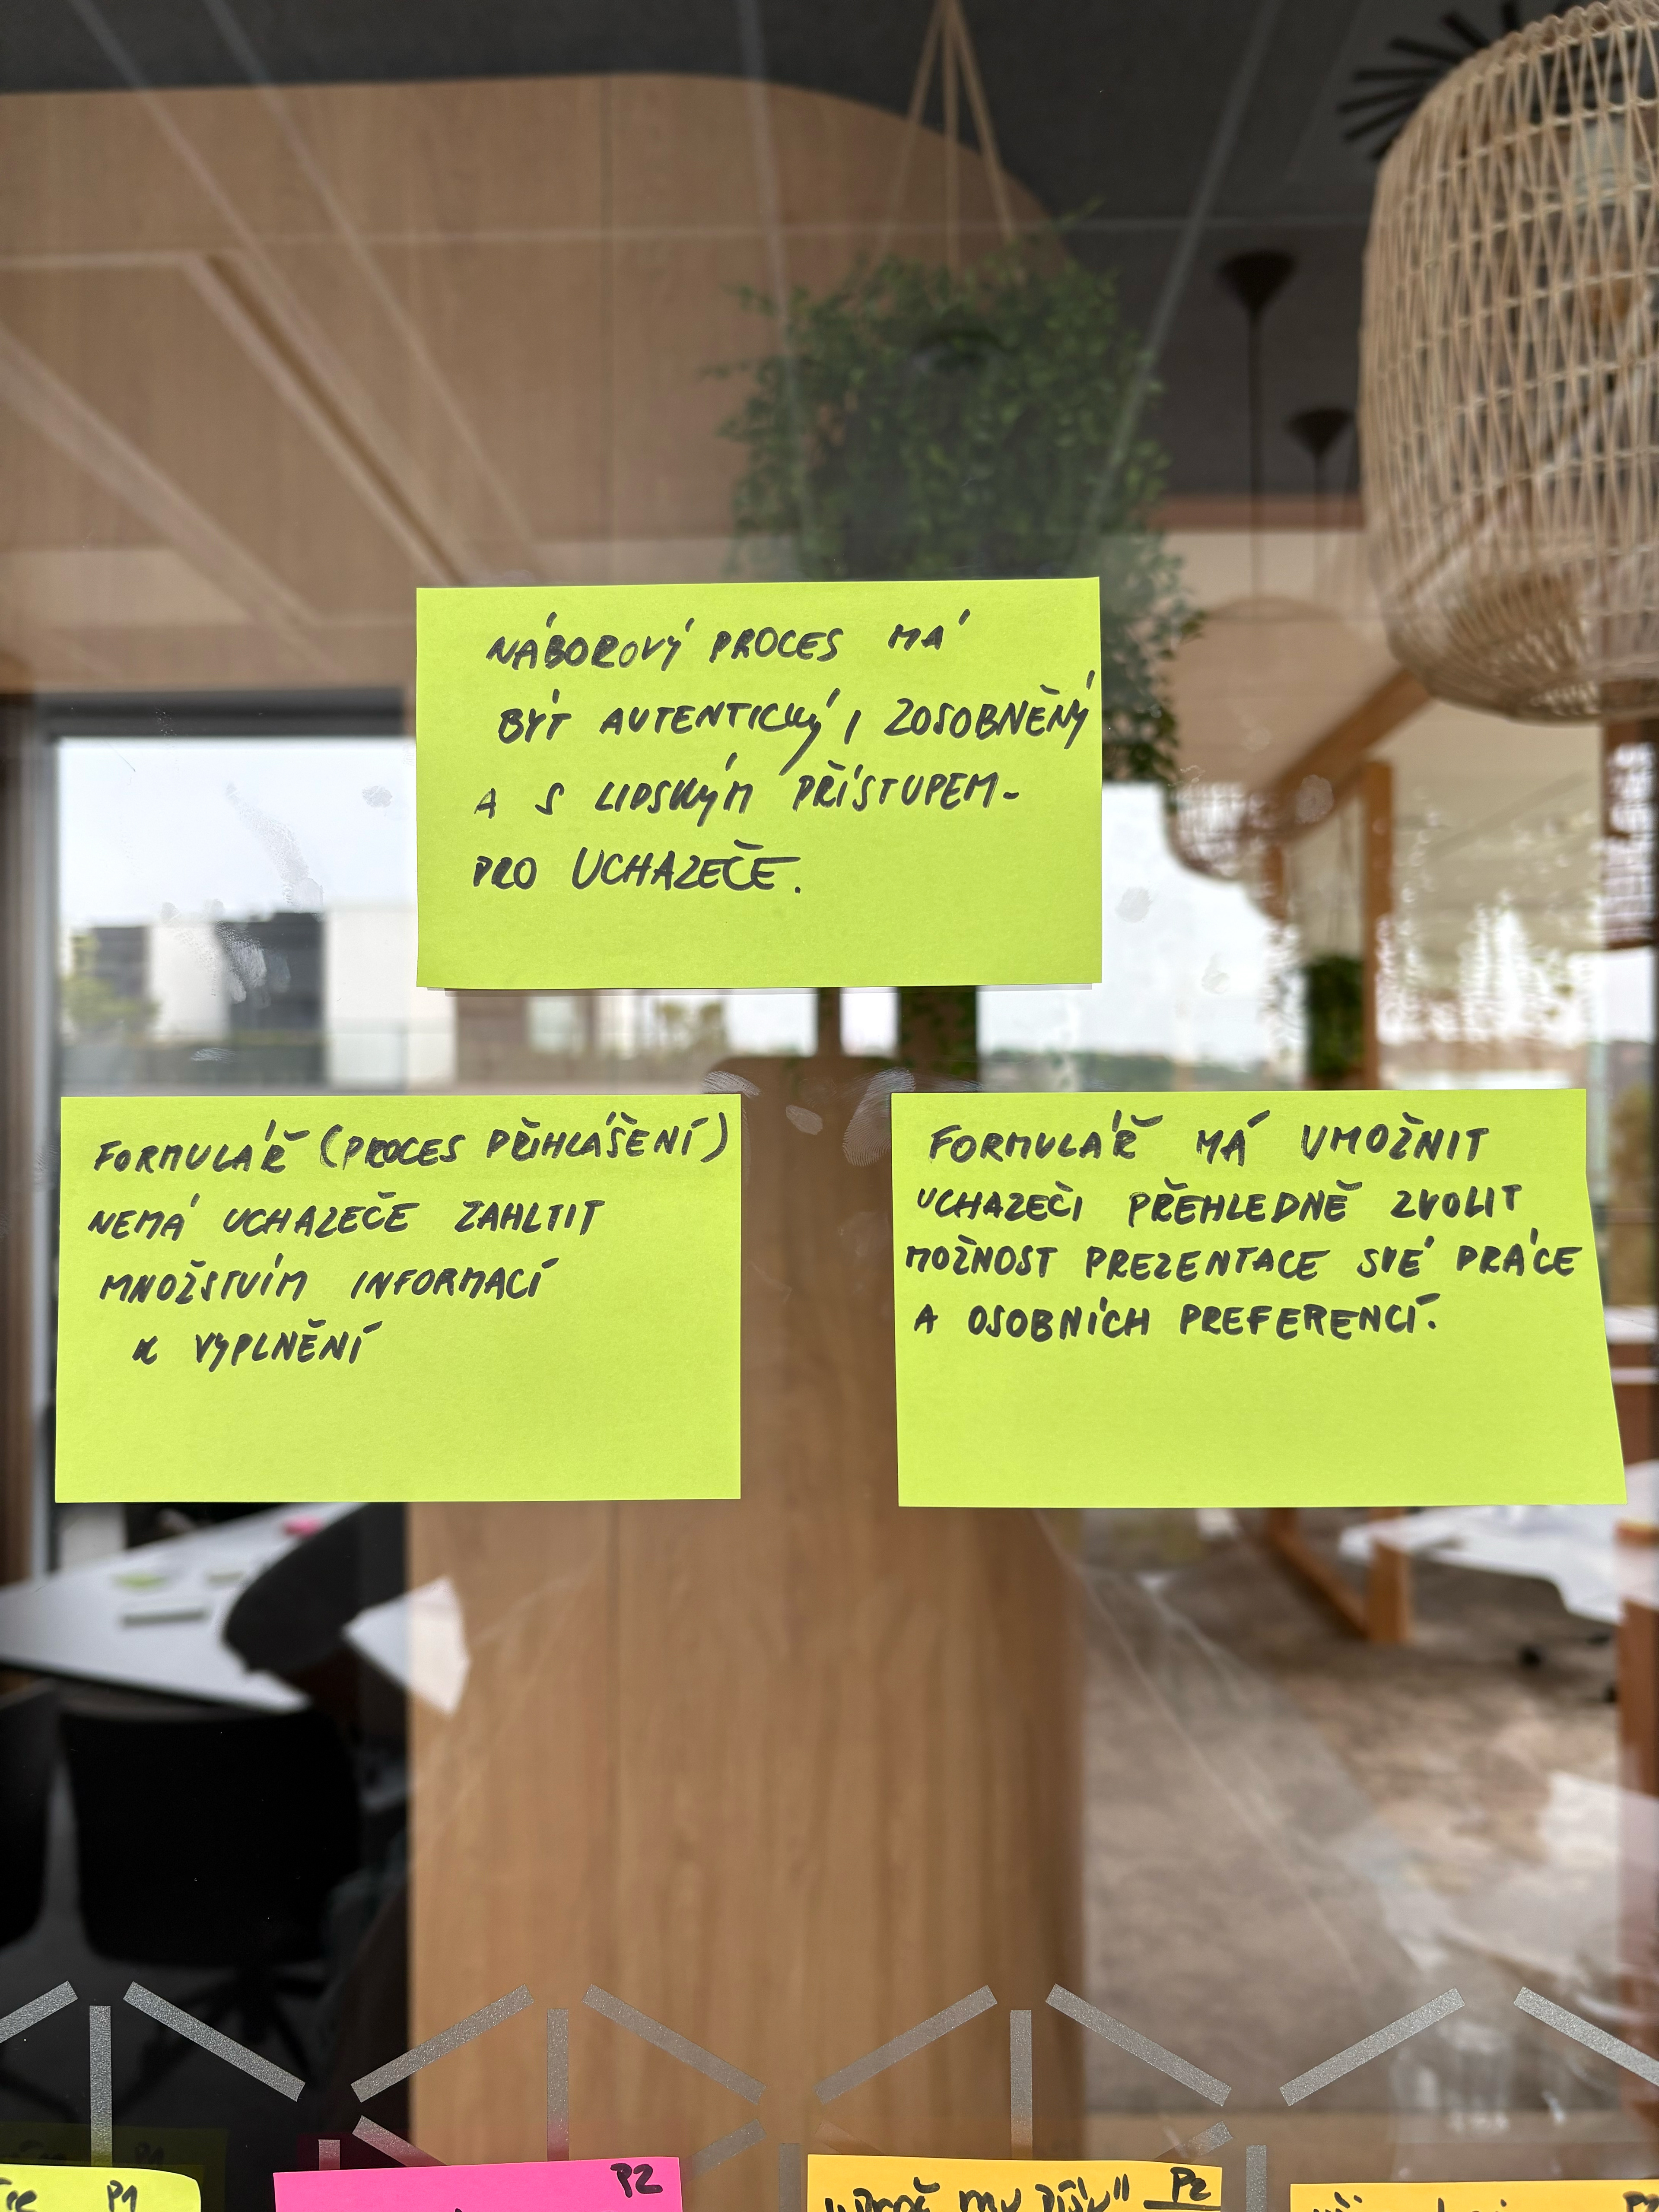 NÁBOROVÝ PROCES MÁ
BÝT AUTENTICKÝ, ZOSOBNĚNÝ
A S LIDSKÝM PŘÍSTUPEM-
PRO UCHAZEČE.
FORMULÁŘ (PROCES PŘIHLÁŠENÍ)
NEMÁ UCHAZEČE ZAHLTIT
MNOŽSTVÍM INFORMACÍ
K VYPLNĚNÍ
FORMULÁŘ MÁ UMOŽNIT
UCHAZEČI PŘEHLEDNĚ ZVOLIT
MOŽNOST PREZENTACE SVÉ PRÁCE
A OSOBNÍCH PREFERENCÍ.
P1
P2
P2